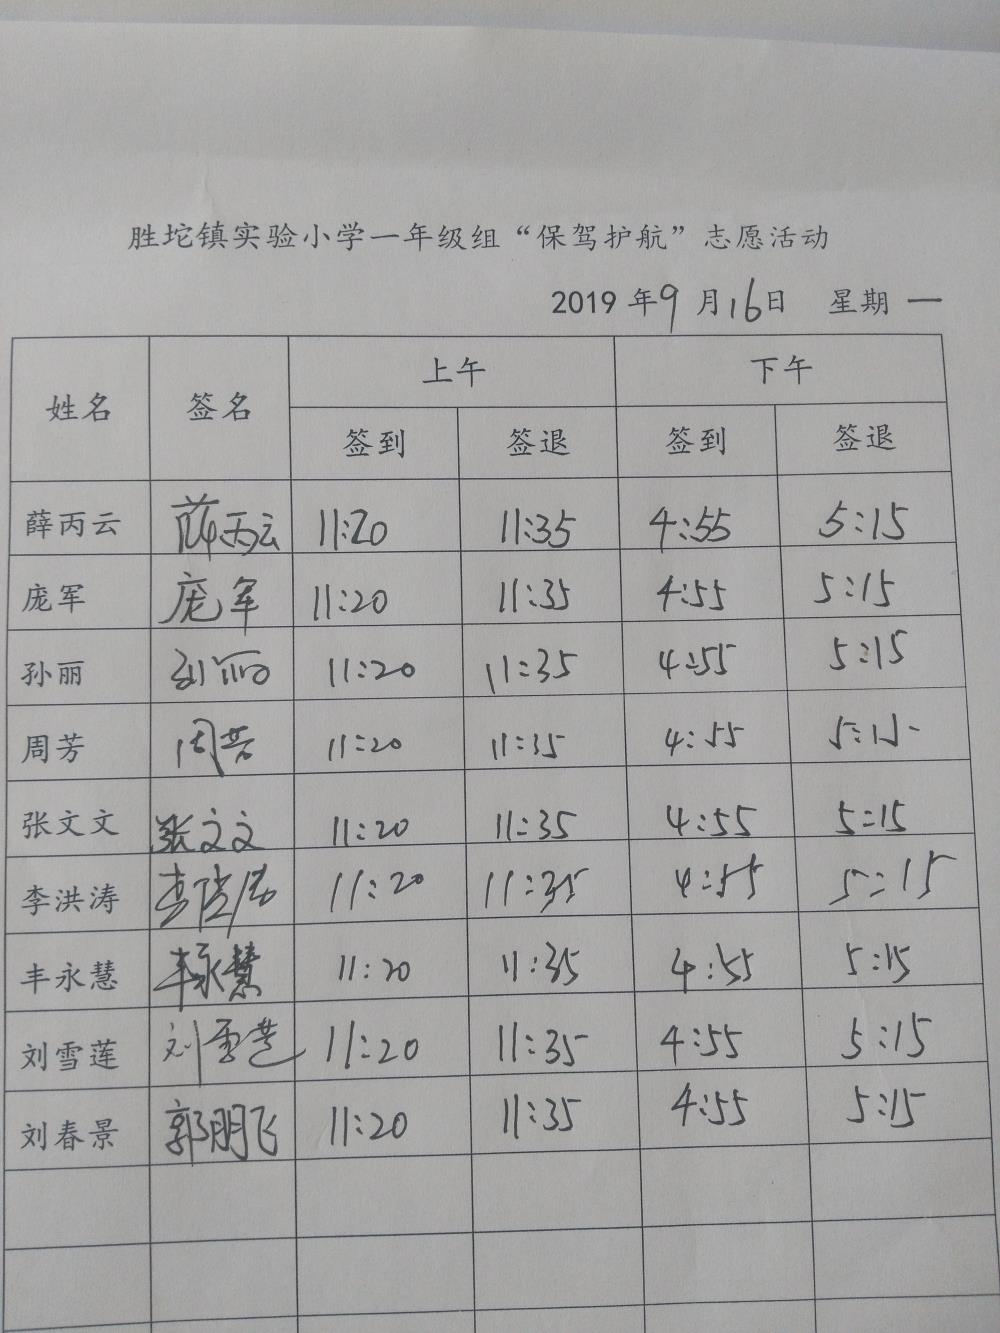 胜坨镇实验小学一年级组“保驾护航”志愿活动
2019 年9 月16日 星期 一
姓名 签名 上午 下午
签到 签退 签到 签退
薛丙云 薛丙云 11:20 11:35 4:55 5:15
庞军 庞军 11:20 11:35 4:55 5:15
孙丽 孙丽 11:20 11:35 4:55 5:15
周芳 周芳 11:20 11:35 4:55 5:15
张文文 张文文 11:20 11:35 4:55 5:15
李洪涛 李洪涛 11:20 11:35 4:55 5:15
丰永慧 丰永慧 11:20 11:35 4:55 5:15
刘雪莲 刘雪莲 11:20 11:35 4:55 5:15
刘春景 郭朋飞 11:20 11:35 4:55 5:15